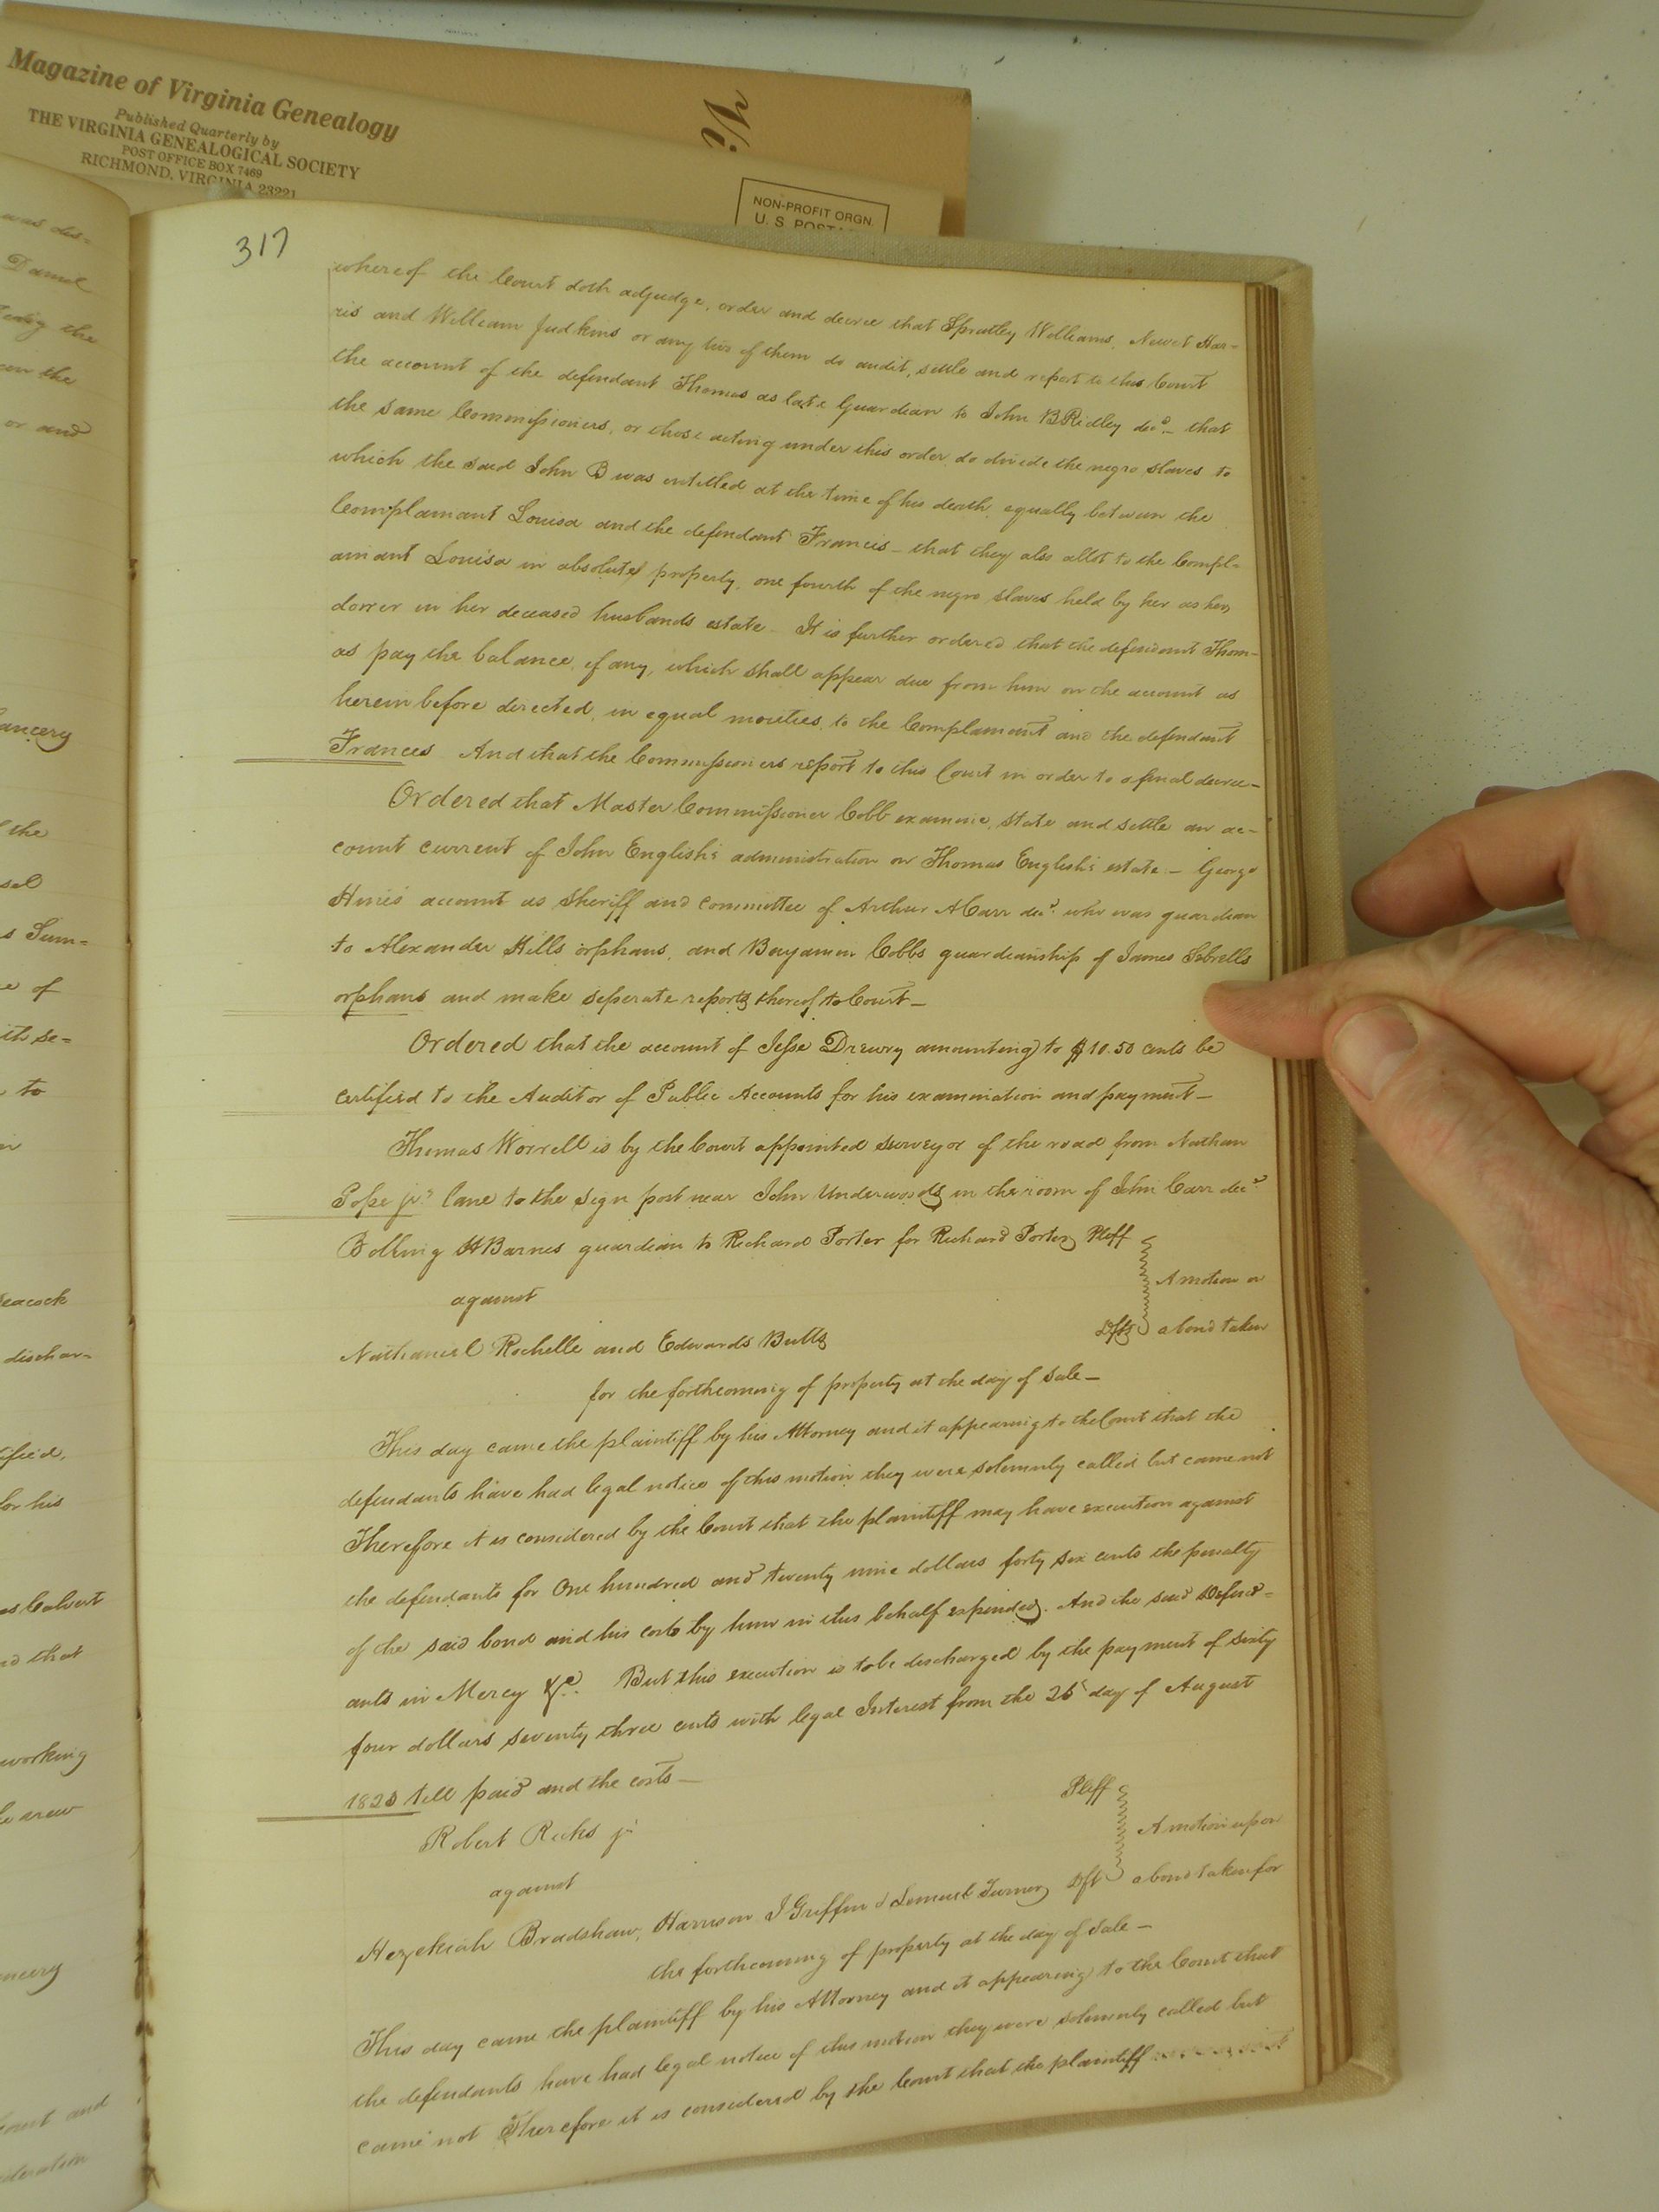 Magazine of Virginia Genealogy
Published Quarterly by
THE VIRGINIA GENEALOGICAL SOCIETY
POST OFFICE BOX 7469
RICHMOND, VIRGINIA 23221
NON-PROFIT ORGN.
U. S. POSTA
317
whereof the Court doth adjudge, order and decree that Spratley Williams, Newit Har-
ris and William Judkins or any two of them do audit, settle and report to this Court
the account of the defendant Thomas as late Guardian to John B Ridley decd. that
the same Commissioners, or those acting under this order do divide the negro slaves to
which the said John B was intitled at the time of his death equally between the
Complainant Louisa and the defendant Francis - that they also allot to the Compl-
ainant Louisa in absolute property, one fourth of the negro slaves held by her as her
dower in her deceased husbands estate - It is further ordered that the defendant Thom-
as pay the balance, if any, which shall appear due from him on the account as
herein before directed, in equal moieties, to the Complainant and the defendant
Frances And that the Commissioners report to this Court in order to a final decree-
Ordered that Master Commissioner Cobb examine, state and settle an ac-
count current of John English's administration on Thomas English's estate - George
Hines account as Sheriff and committee of Arthur A Carr decd. who was guardian
to Alexander Hills orphans, and Benjamin Cobbs guardianship of James Sebrells
orphans and make seperate reports thereof to Court -
Ordered that the account of Jesse Drewry amounting to $10.50 cents be
certified to the Auditor of Public Accounts for his examination and payment -
Thomas Worrell is by the Court appointed surveyor of the road from Nathan
Pope jr's lane to the sign post near John Underwoods in the room of John Carr decd.
Bolling H Barnes guardian to Richard Porter for Richard Porter Pltff
A motion on
against
Nathaniel Rochelle and Edwards Butts Dfts a bond taken
for the forthcoming of property at the day of sale -
This day came the plaintiff by his Attorney and it appearing to the Court that the
defendants have had legal notice of this motion they were solemnly called but came not
Therefore it is considered by the Court that the plaintiff may have execution against
the defendants for One hundred and twenty nine dollars forty six cents the penalty
of the said bond and his costs by him in this behalf expended. And the said Defend-
ants in Mercy &c. But this execution is to be discharged by the payment of sixty
four dollars seventy three cents with legal Interest from the day of August
till paid and the costs -
Robert Ricks jr Pltff
A motion upon
against
Hezekiah Bradshaw, Harrison J Griffin & Lemuel Turner Dft a bond taken for
the forthcoming of property at the day of sale -
This day came the plaintiff by his Attorney and it appearing to the Court that
the defendants have had legal notice of this motion they were solemnly called but
came not Therefore it is considered by the Court that the plaintiff